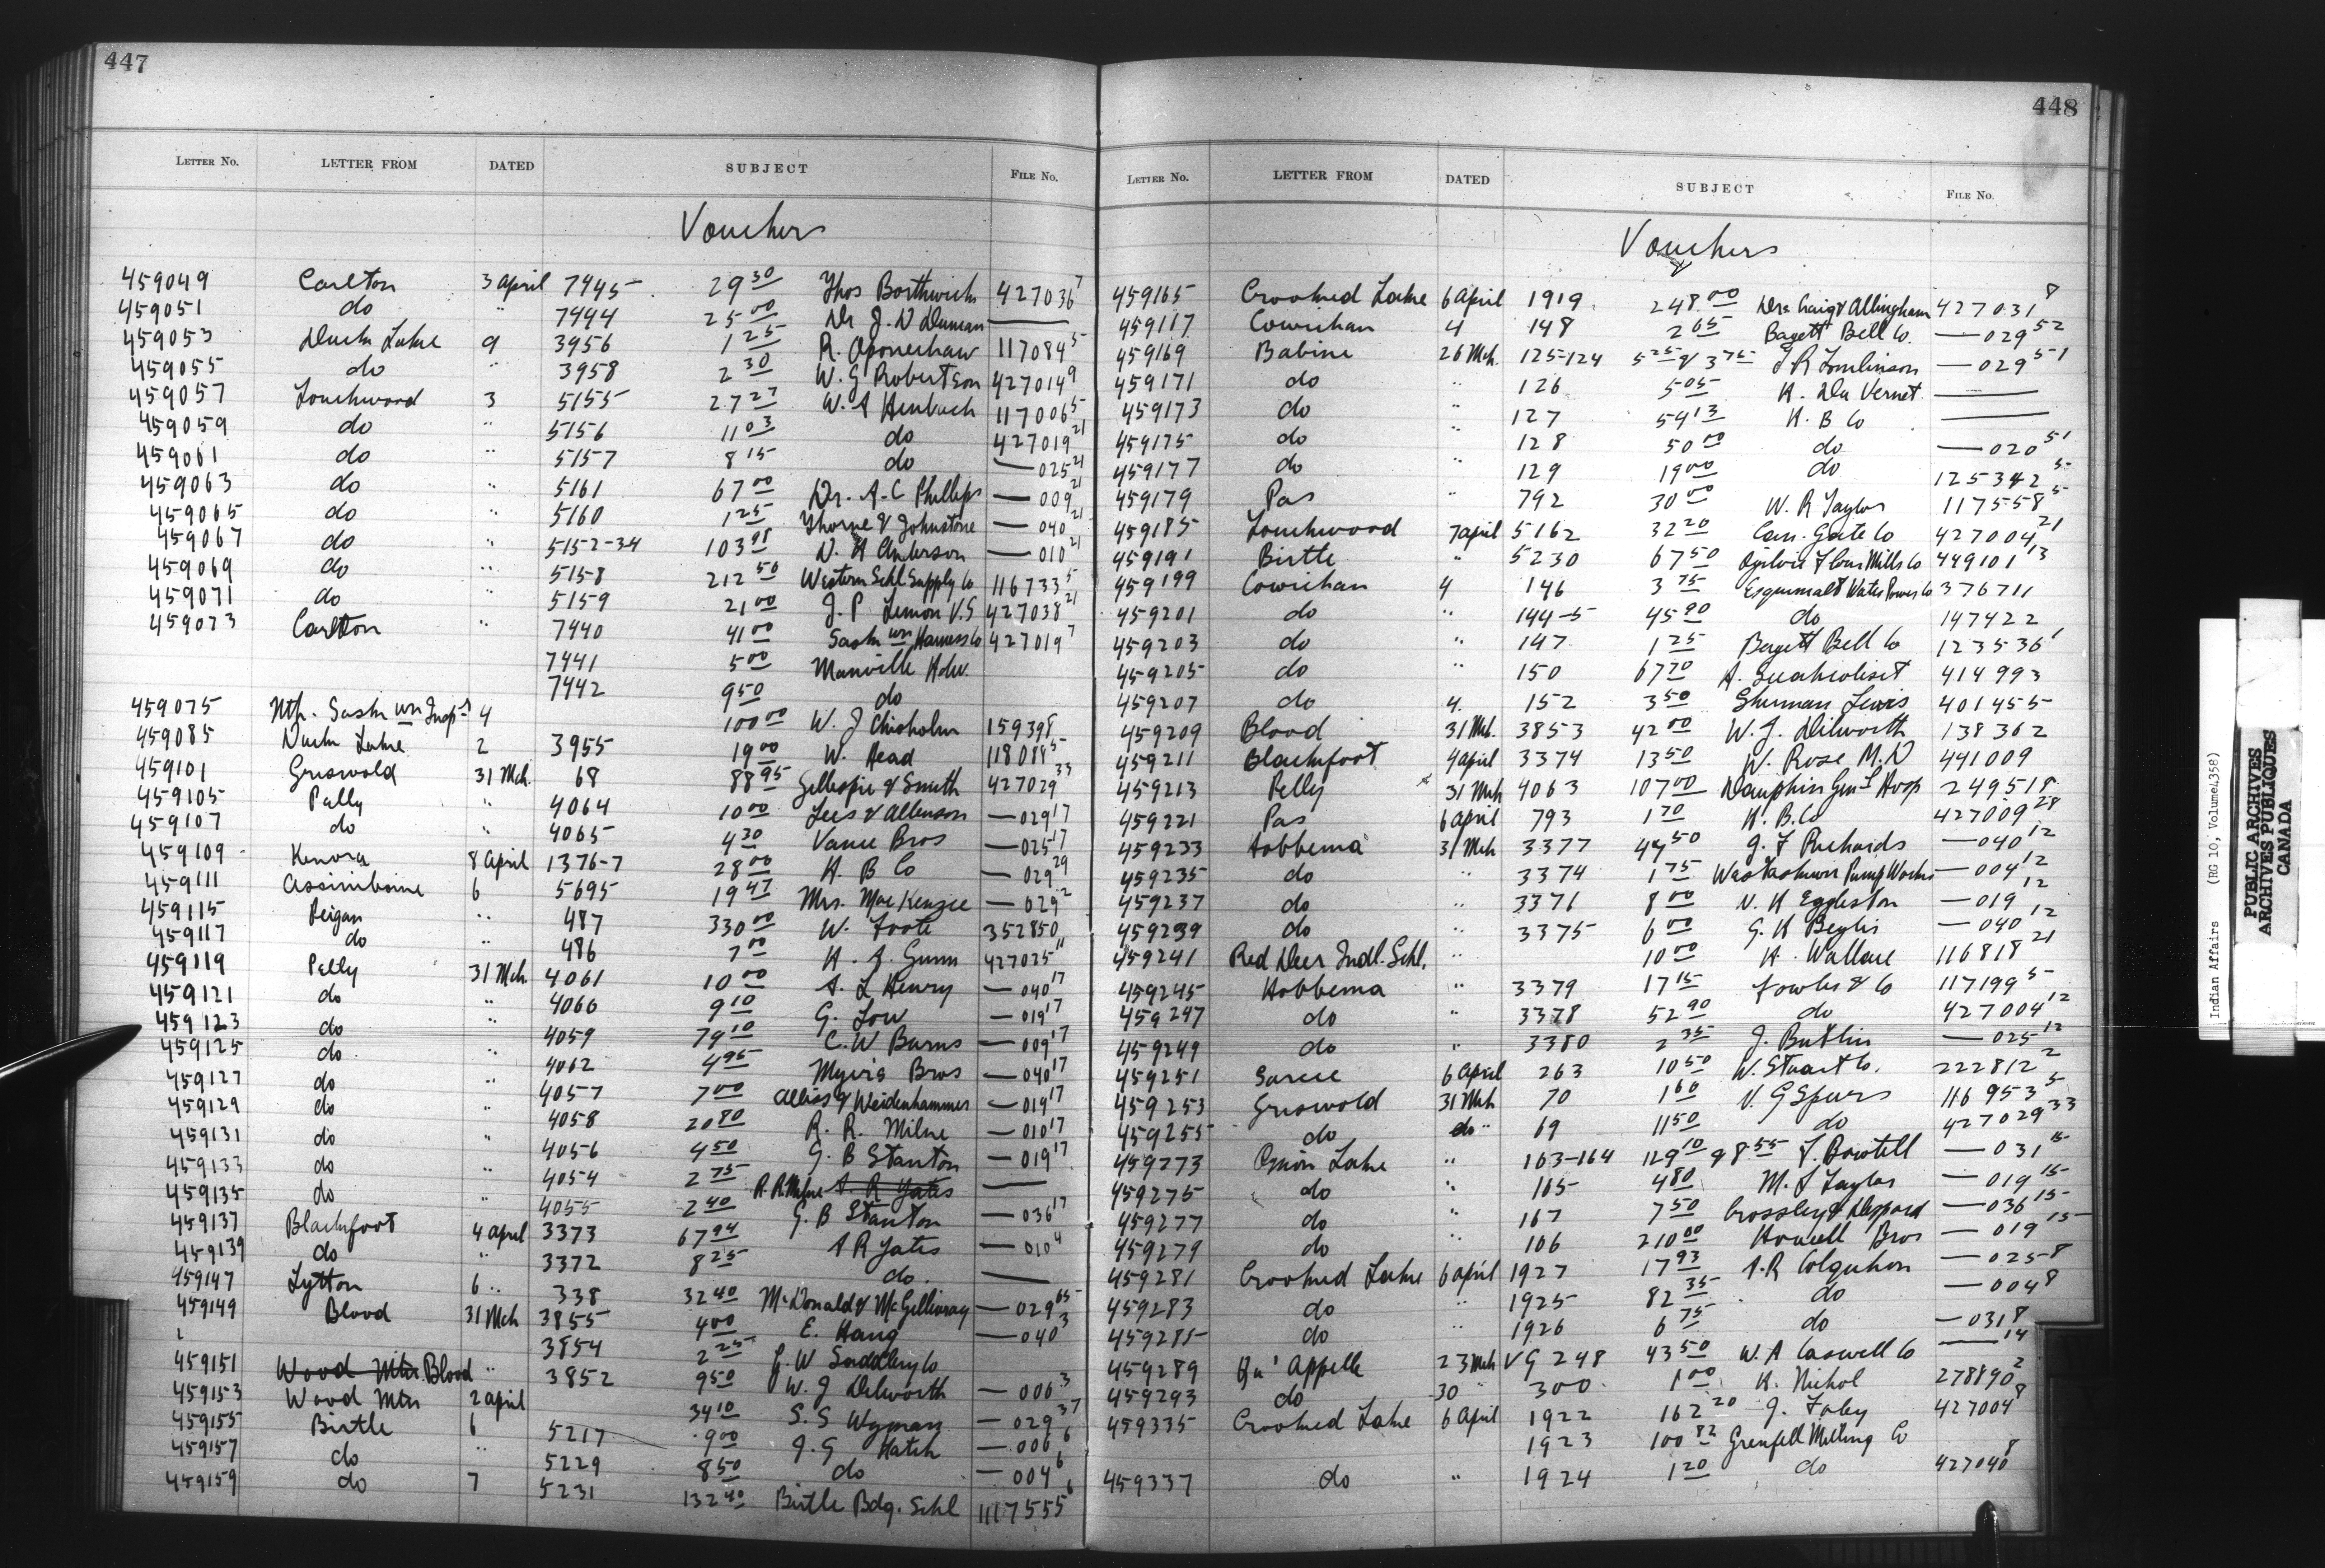 447
LETTER NO. LETTER FROM DATED SUBJECT FILE NO.
Vouchers
459049 Carlton 3 april 7445 29 30 Thos Borthwick 427036 7
459051 do " 7444 25 00 Dr J. N Duman —
459053 Duck Lake 9 3956 1 25 R. 117084 5
459055 do " 3958 2 30 W. G Robertson 427014 9
459057 Touchwood 3 5155 27 27 W. A Heubach 117006 5
459059 do " 5156 11 03 do 427019 21
459061 do " 5157 8 15 do — 025 21
459063 do " 5161 67 00 Dr. A. C Phillips — 009 21
459065 do " 5160 1 25 Thorne & Johnstone — 040 21
459067 do " 5152-34 103 98 N. H Anderson — 010 21
459069 do " 5158 212 50 Western Schl. Supply Co 116733 5
459071 do " 5159 21 00 J. P Lemon V.S 427038 21
459073 Carlton " 7440 41 00 Saskn wn Harness Co 427019 7
7441 5 00 Manville Hdw.
7442 9 50 do
459075 Nth. Saskn wn Insp- 4 100 00 W. J Chisholm 159398
459085 Duck Lake 2 3955 19 00 W. Head 118089 5
459101 Griswold 31 Mch. 68 88 95 Gillespie & Smith 427029 33
459105 Pelly " 4064 10 00 Lees & — 029 17
459107 do " 4065 4 30 Vance Bros — 025 17
459109 Kenora 8 April 1376-7 28 00 H B Co — 029 29
459111 Assiniboine 6 5695 19 47 Mrs. MacKenzie — 029 2
459115 Peigan " 487 330 00 W. Foote 352850
459117 do " 486 7 00 H. J. Gunn 427025 11
459119 Pelly 31 Mch. 4061 10 00 A. L Henry — 040 17
459121 do " 4060 9 10 G. Low — 019 17
459123 do " 4059 79 10 C. W Burns — 009 17
459125 do " 4062 4 95 Myers Bros — 040 17
459127 do " 4057 7 00 & Weidenhammer — 019 17
459129 do " 4058 20 80 R. R. Milne — 010 17
459131 do " 4056 4 50 G. B Stanton — 019 17
459133 do " 4054 2 75 R. R. Milne A. R Yates —
459135 do " 4055 2 40 G. B Stanton — 036 17
459137 Blackfoot 4 april 3373 67 94 A R Yates — 010 4
459139 do " 3372 8 25 do. —
459147 Lytton 6 " 338 32 40 McDonald & McGillivray — 029 65
459149 Blood 31 Mch 3855 4 00 E. Haug — 040 3
3854 2 25 G. W Saddlery Co
459151 Wood Mtn. Blood " 3852 9 50 W. J Dilworth — 006 3
459153 Wood Mtn 2 april 34 10 S. S Wyman — 029 37
459155 Birtle 6 5217 9 00 J. G Hatch — 006 6
459157 do " 5229 8 50 do — 004 6
459159 do 7 5231 132 40 Birtle Bdg. Schl 117555 6
448
LETTER NO. LETTER FROM DATED SUBJECT FILE NO.
Vouchers
459165 Crooked Lake 6 April 1919 248 00 Drs. Craig & Allingham 427031 8
459167 Cowichan 4 148 2 65 Bagett Bell Co. — 029 52
459169 Babine 26 Mch. 125-124 5 25 & 3 75 J R Tomlinson — 029 51
459171 do " 126 5 05 H. Du Vernet —
459173 do " 127 54 13 H. B Co —
459175 do " 128 50 00 do — 020 51
459177 do " 129 19 00 do 125342 5
459179 Pas " 792 30 00 W. R Taylor 117558 5
459185 Touchwood 7 april 5162 32 20 Can. Gate Co 427004 21
459191 Birtle " 5230 67 50 Ogilvie Flour Mills Co 449101 13
459199 Cowichan 4 146 3 75 Esquimalt Water Power Co 376711
459201 do " 144-5 45 90 do 147422
459203 do " 147 1 25 Bagett Bell Co 123536 1
459205 do " 150 67 20 A. 414993
459207 do 4. 152 3 50 Sherman Lewis 401455
459209 Blood 31 Mch. 3853 42 00 W. J. Dilworth 138362
459211 Blackfoot 4 april 3374 13 50 W. Rose M. D 441009
459213 Pelly 31 Mch 4063 107 00 Dauphin Genl Hosp 249518
459221 Pas 6 April 793 1 70 H. B. Co 427009 28
459233 Hobbema 31 Mch 3377 44 50 J. F Richards — 040 12
459235 do " 3374 1 75 Pump Works — 004 12
459237 do " 3371 8 00 N. H Eggleston — 019 12
459239 do " 3375 6 00 G. H — 040 12
459241 Red Deer Indl. Schl. " 10 00 H. Wallace 116818 21
459245 Hobbema " 3379 17 15 Fowler & Co 117199 5
459247 do " 3378 52 90 do 427004 12
459249 do " 3380 2 35 J. Butlin — 025 12
459251 Sarcee 6 April 263 10 50 W. Stuart Co. 222812 2
459253 Griswold 31 Mch 70 1 60 V. G Spurs 116953 5
459255 do " 69 11 50 do 427029 33
459273 Onion Lake " 163-164 129 10 & 8 55 F. Bowtell — 031 15
459275 do " 165 4 80 M. J Taylor — 019 15
459277 do " 167 7 50 Crossley & — 036 15
459279 do " 106 210 00 Howell Bros — 019 15
459281 Crooked Lake 6 april 1927 17 93 A. R Colquhon — 025 8
459283 do " 1925 82 35 do — 004 8
459285 do " 1926 6 75 do — 031 8
459289 Qu'Appelle 23 Mch VG 248 43 50 W. A Caswell Co — 14
459293 do 30 " 300 1 00 H. Nichol 278890 2
459335 Crooked Lake 6 April 1922 162 20 J. Foley 427004 8
1923 100 82 Grenfell Milling Co
459337 do " 1924 1 20 do 427040 8
Indian Affairs (RG 10, Volume 4358)
PUBLIC ARCHIVES
ARCHIVES PUBLIQUES
CANADA